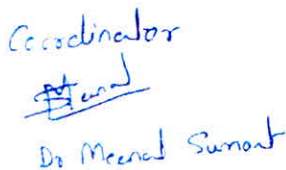 Coordinator
Dr Meenal Sumant